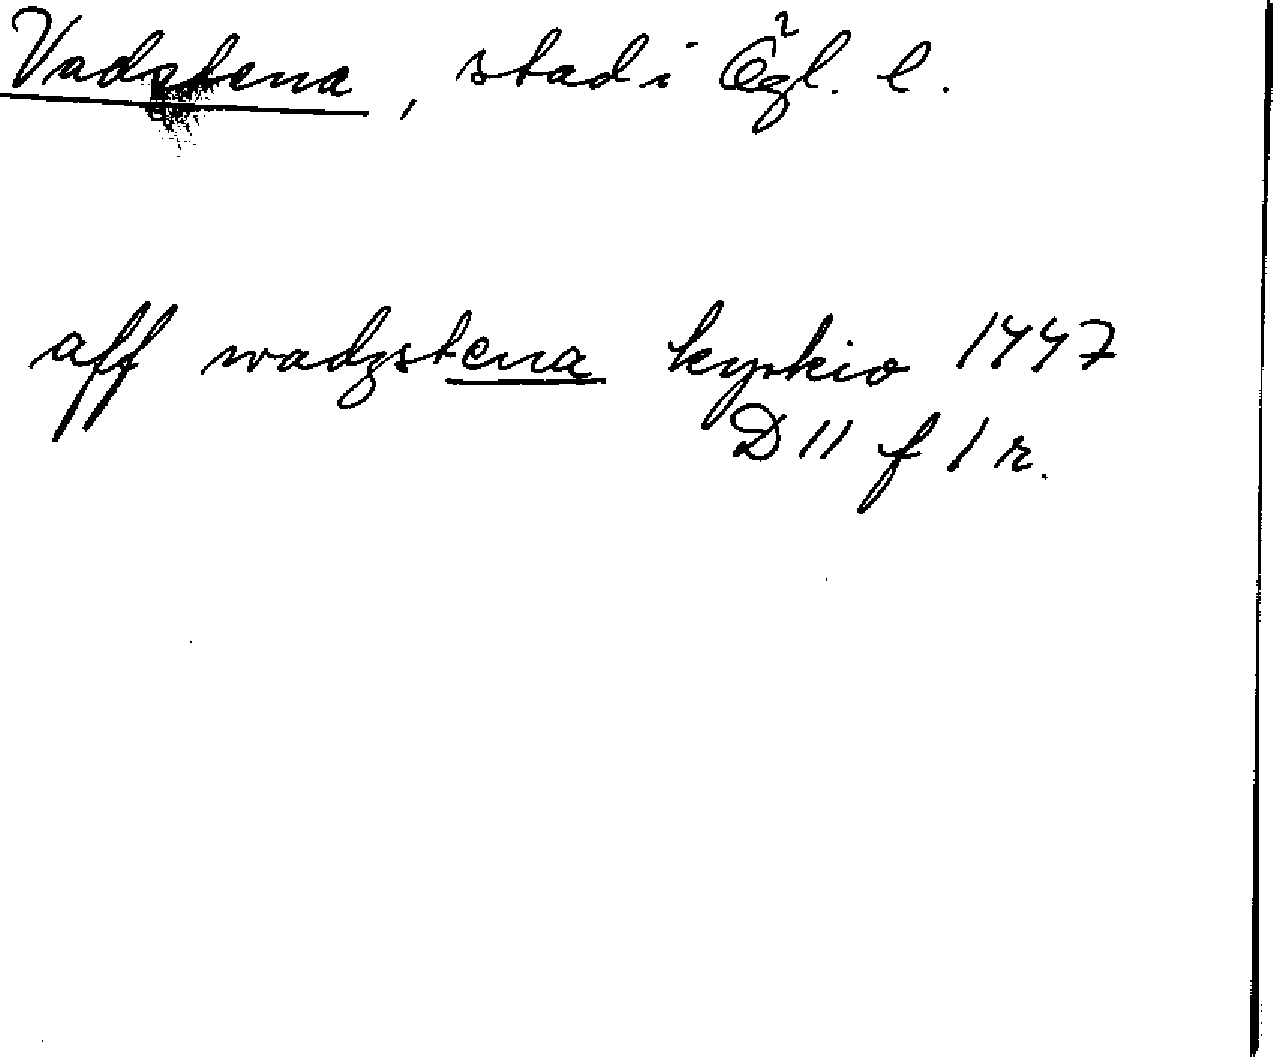 Vadstena, stad i Ögl. l.
aff wadzstena kyrkio 1447
D 11 f 1 r.